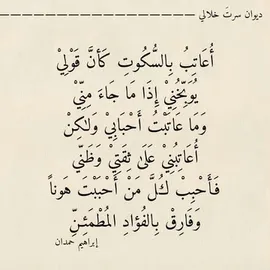 ديوان سرتَ خلالي
أُعَاتِبُ بِالسُّكُوتِ كَأَنَّ قَوْلِيْ
يُوَبِّخُنِيْ إِذَا مَا جَاءَ مِنِّيْ
وَمَا عَاتَبْتُ أَحْبَابِيْ وَلَٰكِنْ
أُعَاتِبُنِيْ عَلَىٰ ثِقَتِيْ وَظَنِّي
فَأَحْبِبْ كُلَّ مَنْ أَحْبَبْتَ هَوناً
وَفَارِقْ بِالفُؤَادِ المُطْمَئِنِّ
إبراهيم حمدان